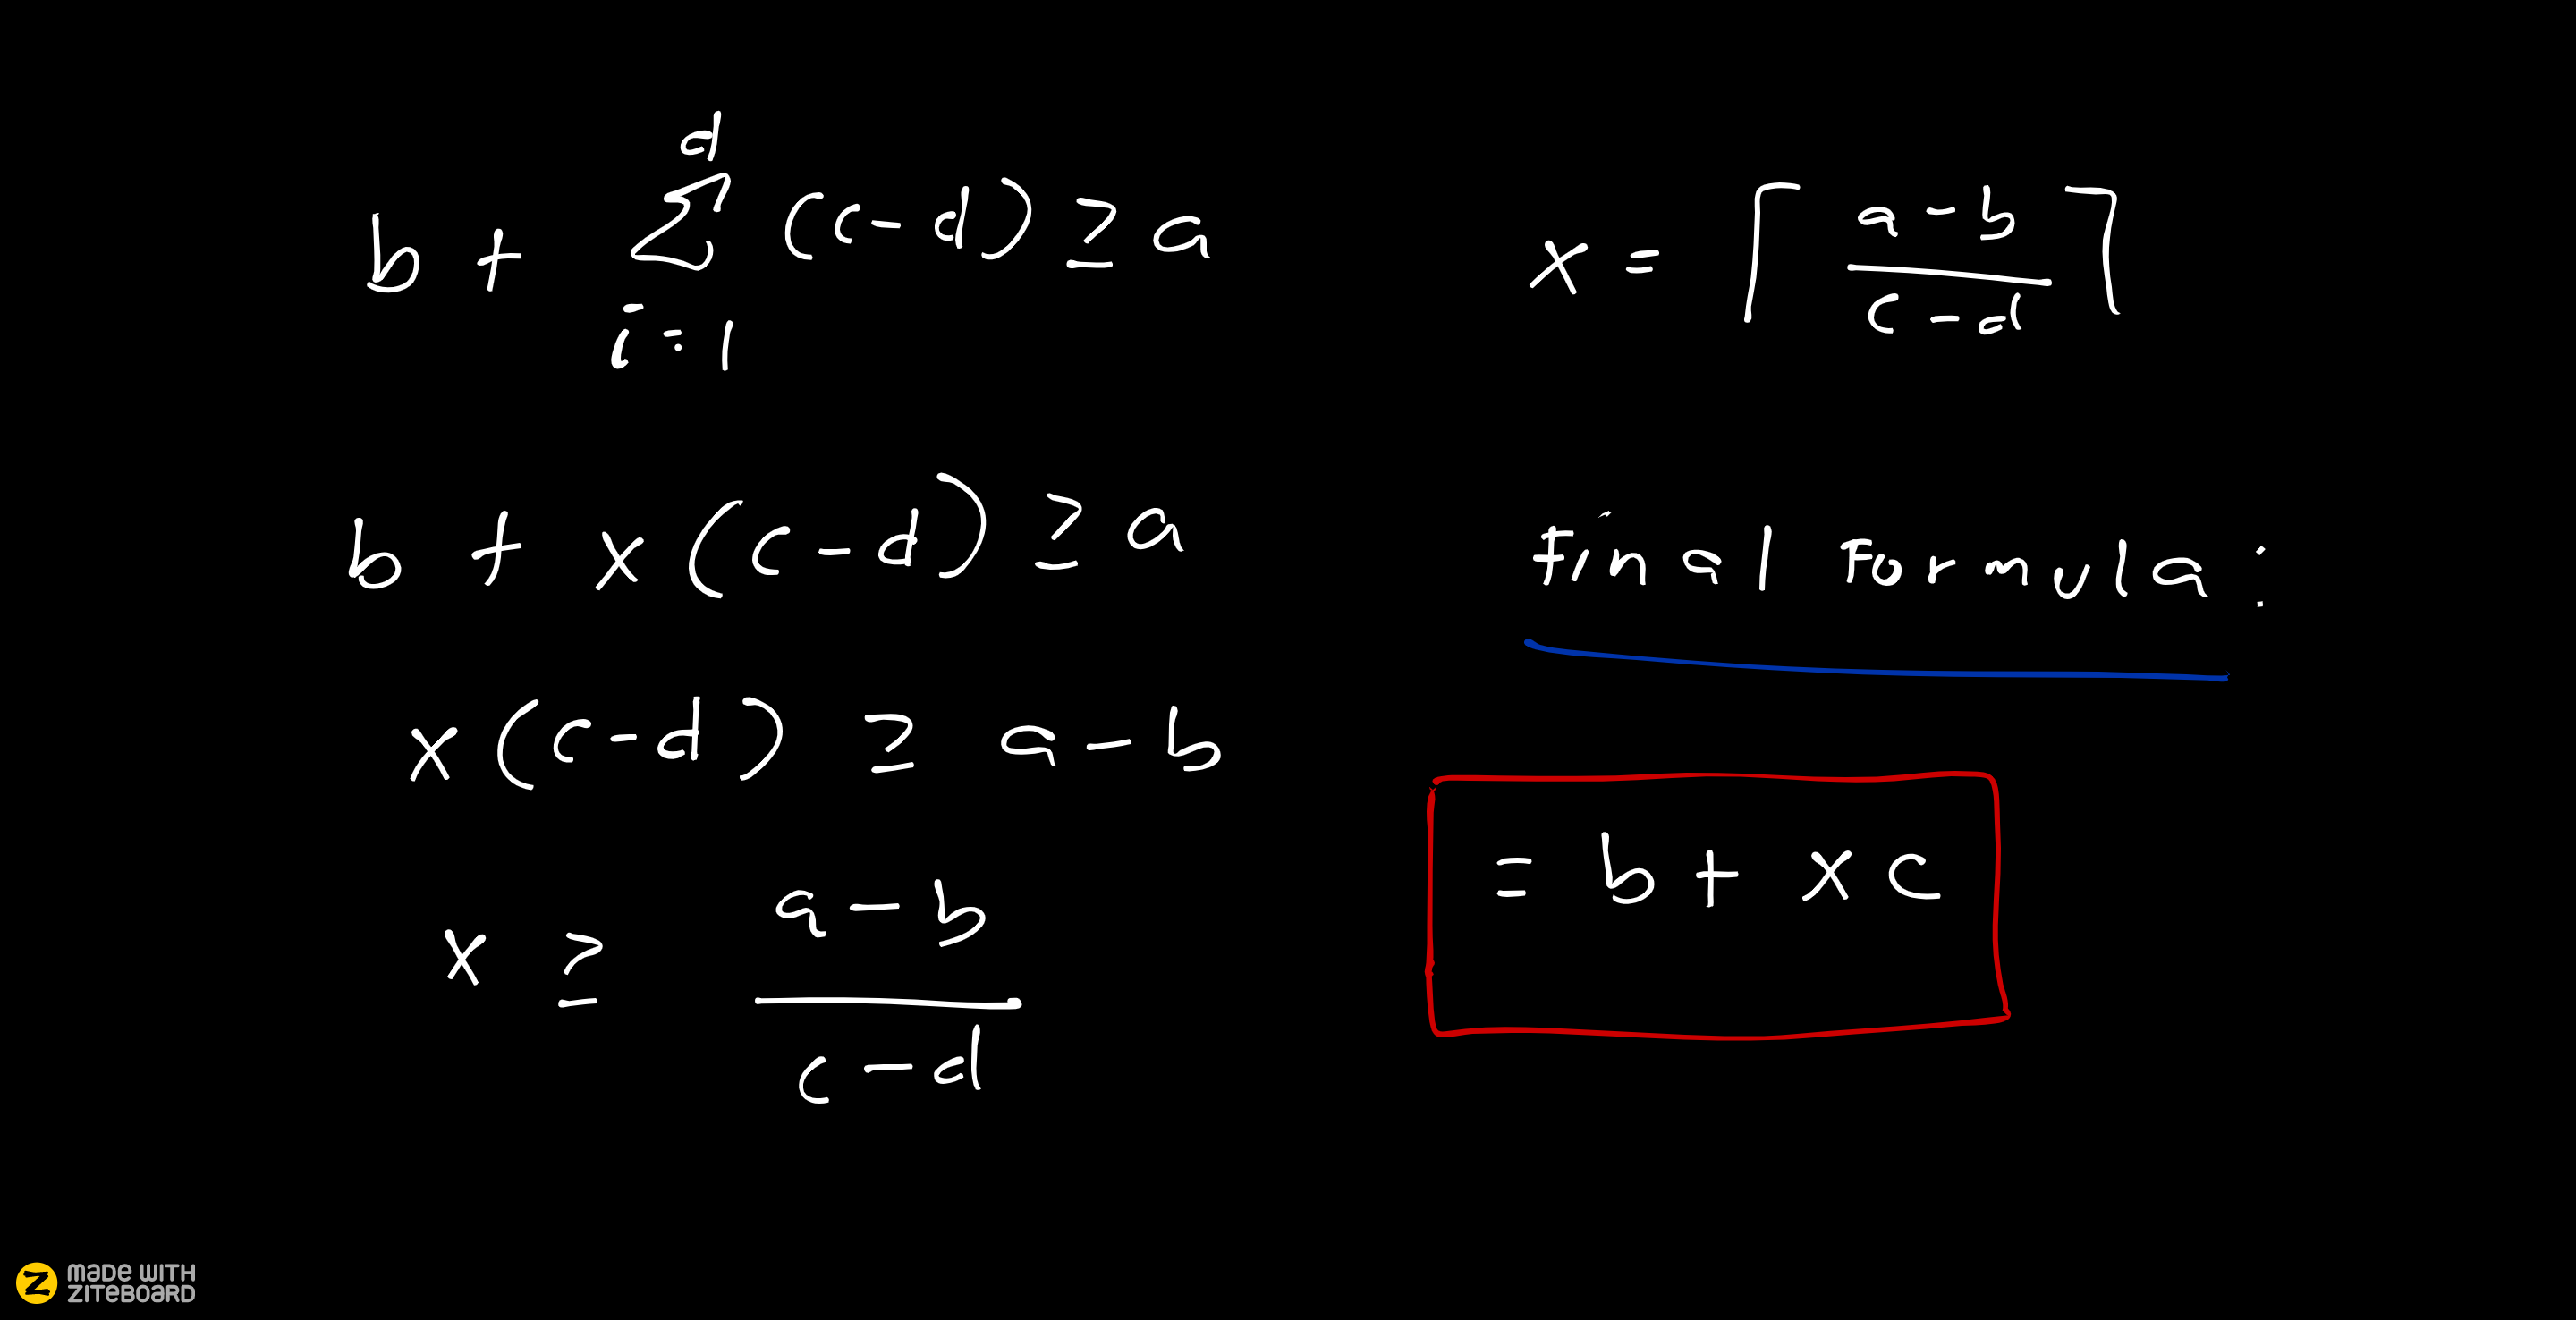 d
b + ∑ (c-d) ≥ a
i=1
b + x(c-d) ≥ a
x(c-d) ≥ a-b
x ≥ a-b
c-d
x = ⌈ a-b ⌉
c-d
Final Formula:
= b + xc
Z MADE WITH
ZITEBOARD